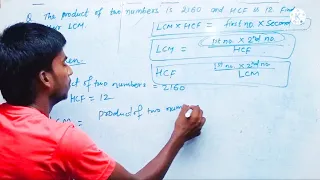 Q. The product of two numbers is 2160 and HCF is 12 Find
LCM.
LCM × HCF = first no. × Second
LCM = 1st no. × 2nd no.
HCF
HCF 1st no. × 2nd no.
LCM
of two numbers = 2160
HCF = 12
product of two num